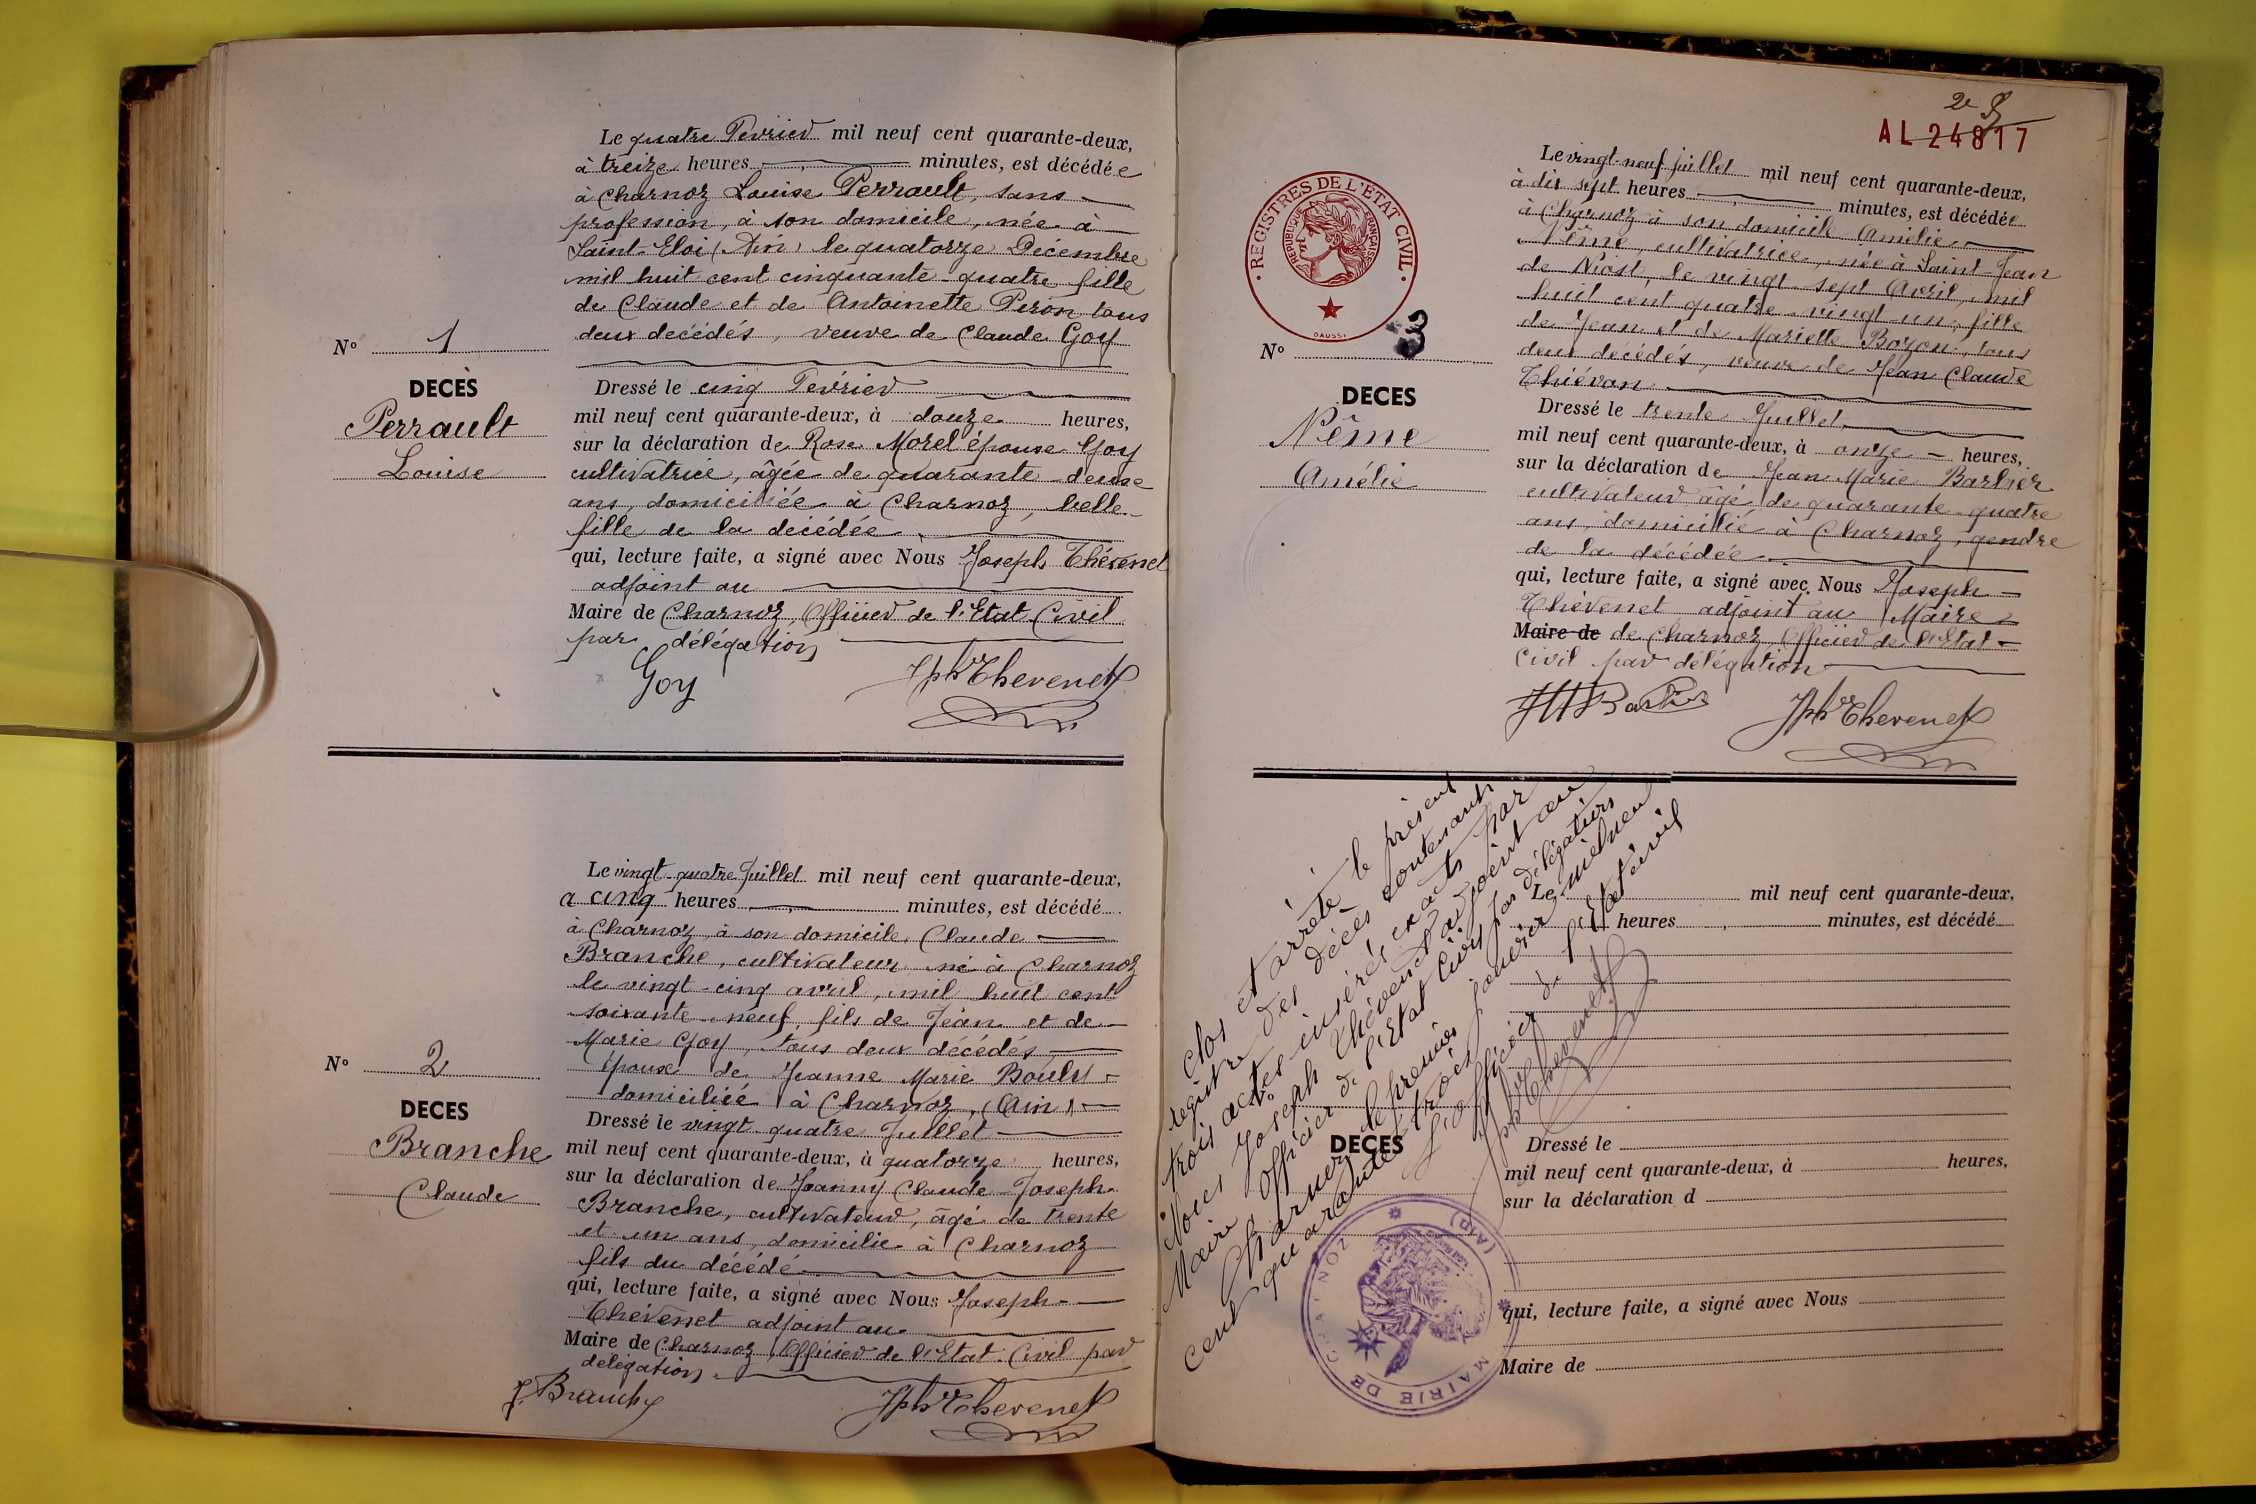 Le quatre Février mil neuf cent quarante-deux,
à treize heures minutes, est décédée
à Charnoz Louise Perrault, sans
profession, à son domicile, née à
Saint-Eloi (Ain) le quatorze Décembre
mil huit cent cinquante-quatre fille
de Claude et de Antoinette Piron tous
deux décédés, veuve de Claude Goy
N° 1
DECÈS
Perrault
Louise
Dressé le cinq Février
mil neuf cent quarante-deux, à douze heures,
sur la déclaration de Rose Morel épouse Goy
cultivatrice, âgée de quarante-deux
ans, domiciliée à Charnoz, belle-
fille de la décédée
qui, lecture faite, a signé avec Nous Joseph Thévenet
adjoint au
Maire de Charnoz, Officier de l'Etat Civil
par délégation
Goy
Jph Thevenet
Le vingt-quatre Juillet mil neuf cent quarante-deux,
à cinq heures minutes, est décédé
à Charnoz, à son domicile, Claude
Branche, cultivateur né à Charnoz
le vingt-cinq avril, mil huit cent
soixante-neuf, fils de Jean et de
Marie Goy, tous deux décédés
époux de Jeanne Marie
domiciliée à Charnoz, (Ain)
N° 2
DECES
Branche
Claude
Dressé le vingt-quatre Juillet
mil neuf cent quarante-deux, à quatorze heures,
sur la déclaration de Joanny Claude Joseph
Branche, cultivateur, âgé de trente
et un ans, domicilié à Charnoz
fils du décédé
qui, lecture faite, a signé avec Nous Joseph
Thévenet adjoint au
Maire de Charnoz, Officier de l'Etat-Civil par
délégation
J. Branche
Jph Thevenet
2e
AL 24817
REGISTRES DE L'ETAT CIVIL
REPUBLIQUE FRANÇAISE
DAUSSI
Le vingt-neuf juillet mil neuf cent quarante-deux,
à dix sept heures minutes, est décédée
à Charnoz à son domicile Amélie
Nême, cultivatrice, née à Saint-Jean
de Niost, le vingt-sept Avril, mil
huit cent quatre-vingt-un, fille
de Jean et de Mariette Bozon, tous
deux décédés, veuve de Jean Claude
Thiévon
N° 3
DECES
Nême
Amélie
Dressé le trente Juillet
mil neuf cent quarante-deux, à onze heures,
sur la déclaration de Jean Marie Barbier
cultivateur âgé de quarante-quatre
ans, domicilié à Charnoz, gendre
de la décédée
qui, lecture faite, a signé avec Nous Joseph
Thévenet adjoint au Maire
Maire de de Charnoz Officier de l'Etat-
Civil par délégation
JM Barbier
Jph Thevenet
Clos et arrêté le présent
registre des décès contenant
trois actes insérés exacts par
Nous Joseph Thévenet adjoint au
Maire Officier de l'Etat Civil par délégation
Charnoz le premier janvier mil neuf
cent quarante trois
L'officier de l'Etat civil
Jph Thevenet
Le mil neuf cent quarante-deux,
heures minutes, est décédé
N°
DECES
Dressé le
mil neuf cent quarante-deux, à heures,
sur la déclaration d
qui, lecture faite, a signé avec Nous
Maire de
MAIRIE DE CHARNOZ (AIN)